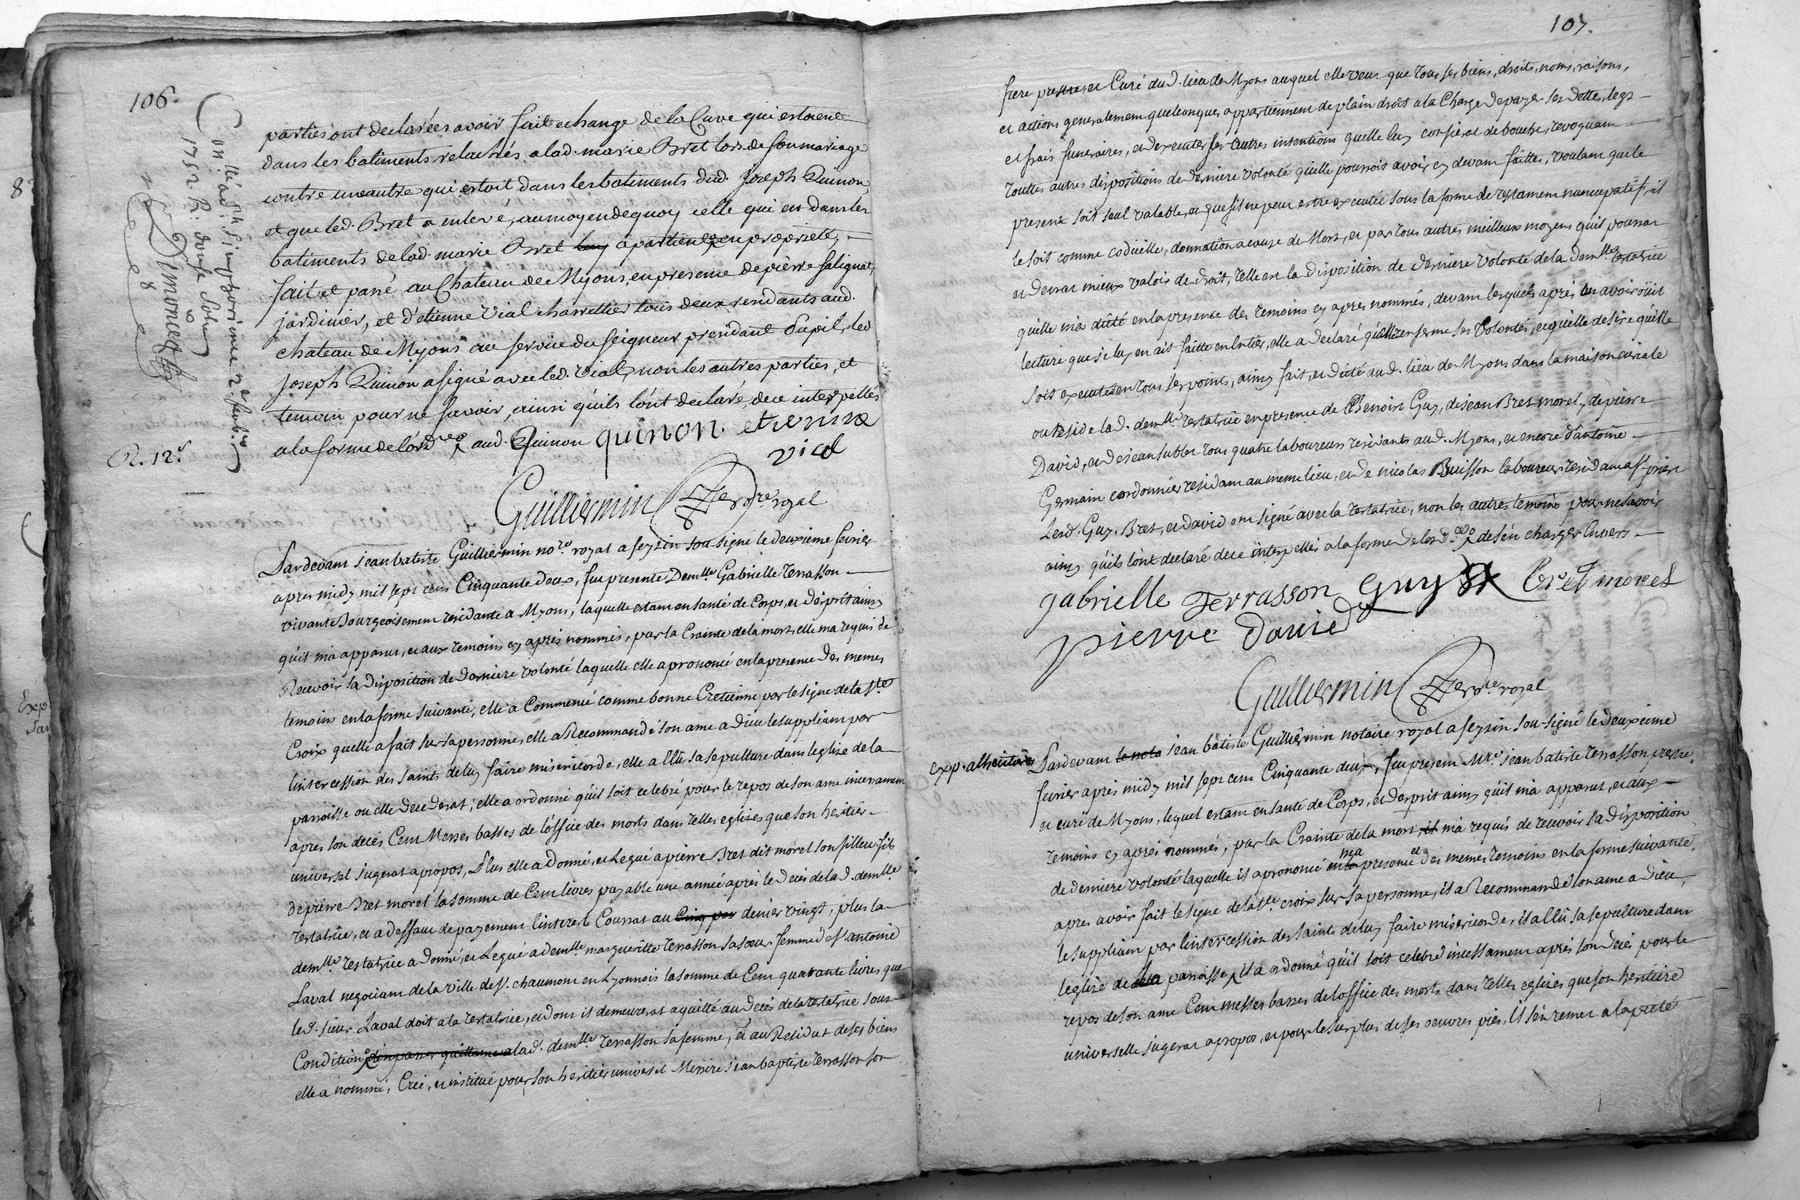 106.
parties ont declarées avoir fait echange de la Cuve qui estoient
dans les batiments relachés a lad. marie Bret lors de son mariage
contre une autre qui estoit dans les batiments dud. joseph Quinon,
et que led. Bret a enlevé, au moyen de quoy celle qui est dans les
batiments de lad. marie Bret luy apartient en proprieté,
fait et passé au Chateau de Myons, en presence de pierre salignat,
jardinier, et d'etienne Vial charrettier tous deux residants aud.
chateau de Myons au service du seigneur president Dupil, led
joseph Quinon a signé avec led. Vial, non les autres parties, et
temoin pour ne sçavoir, ainsi qu'ils l'ont declaré, de ce interpellés
a la forme de l'ord.ce aud. Quinon quinon etienne
vial
Guilliermin no.re royal
R. 12 s.
Con.llé a St. Simphorien ce 2e fevrier
1752 R. douze sols
Demoncel
Pardevant jean batiste Guilliermin no.re royal a feyzin sousigné le deuxieme fevrier
apres midy mil sept cens Cinquante deux, fut presente Dem.lle Gabrielle Terrasson
vivante Bourgeoisement residante a Myons, laquelle estant en santé de Corps, et d'esprit ainsy
qu'il m'a apparut, et aux temoins cy aprés nommés, par la Crainte de la mort, elle ma requis de
Recevoir sa disposition de derniere volonté laquelle elle a prononcé en la presence des memes
temoins en la forme suivante, elle a Commencé comme bonne Cretienne par le signe de la S.te
Croix quelle a fait sur sa personne, elle a Recommandé son ame a Dieu le suppliant par
l'intercession des saints de luy faire misericorde, elle a elû sa sepulture dans leglize de la
parroisse ou elle decederat, elle a ordonné qu'il soit celebré pour le repos de son ame incessament
apres son decés Cent Messes basses de l'office des morts dans telles eglises que son heritier
universel sugerat apropos, Plus elle a donné, et Legué a pierre Bret dit morel son filleul fils
de pierre Bret morel la somme de Cent livres payable une année aprés le decés de la d. dem.lle
testatrice, et a deffaut de payement l'interest Courrat au Cinq par denier vingt, plus la
dem.lle testatrice a donné, et Legué a dem.lle margueritte Terrasson sa sœur femme de s.r antoine
Laval negociant de la ville de S.t chaumont en Lyonnois la somme de Cent quarante livres que
led. sieur Laval doit a la testatrice, et dont il demeurerat aquitté au decés de la testatrice sous
Condition d'en passer quittance a lad. dem.lle Terrasson sa femme, et au Residut de ses biens
elle a nommé, Créé, et institué pour son heritier universel Messire jean baptiste Terrasson son
107.
frere prestre et Curé dud. lieu de Myons auquel elle veut que tous ses biens, droits, noms, raisons,
et actions generalement quelconques appartiennent de plain droit a la Charge de payer ses dettes, legs
et frais funeraires, et d'executer ses autres intentions quelle luy confie, et de bouche, revoquant
touttes autres dispositions de derniere volonté qu'elle pourroit avoir cy devant faittes, voulant que le
present soit seul valable, et que s'il ne peut estre executée sous la forme de testament nuncupatif, il
le soit comme codicille, donnation a cause de Mort, et par tous autres meilleurs moyens qu'il pourrat
et devrat mieux valoir de droit, telle est la disposition de derniere volonté de la dem.lle testatrice
quelle m'a dicté en la presence des temoins cy apres nommés, devant lesquels aprés en avoir oüit
lecture que je luy en ait faitte en Entier, elle a declaré quelle renferme ses Volontés, et quelle desire quelle
soit executée en tous les points, ainsy fait, et dicté aud. lieu de Myons dans la maison curiale
ou Reside la d. dem.lle testatrice en presence de Benoist Guy, de jean Bret morel, de pierre
David, et de jean sublet tous quatre laboureurs residants aud. Myons, et encore d'antoine
Germain cordonnier residant au meme lieu, et de nicolas Buisson laboureur residant a S.t priest
Lesd. Guy, Bret, et David ont signé avec la testatrice, non les autres temoins pour ne sçavoir
ainsy qu'ils l'ont declaré de ce interpellés a la forme de l'ord.ce de s'en charger Envers
gabrielle Terrasson Guy bret morel
pierre david
Guilliermin no.re royal
exp. a l'heritier
Pardevant le nota jean bâtiste Guilliermin notaire royal a feyzin sousigné le deuxieme
fevrier apres midy mil sept cent Cinquante deux, fut present M.re jean batiste Terrasson prestre
et curé de Myons, lequel estant en santé de Corps, et d'esprit ainsy qu'il m'a apparut, et aux
temoins cy aprés nommés, par la Crainte de la mort, il m'a requis de recevoir sa disposition
de derniere volonté laquelle il a prononcé en la ma presence et des memes temoins en la forme suivante,
apres avoir fait le signe de la S.te croix sur sa personne, il a Recommandé son ame a Dieu,
le suppliant par l'intercession des saints de luy faire misericorde, il a elû sa sepulture dans
leglise de la parroisse, il a ordonné qu'il soit celebré incessament aprés son decés pour le
repos de son ame Cent messes basses de l'office des morts dans telles eglises que son heritiere
universelle sugerat apropos, et pour le surplus de ses oeuvres pies, Il s'en remet a la pieté